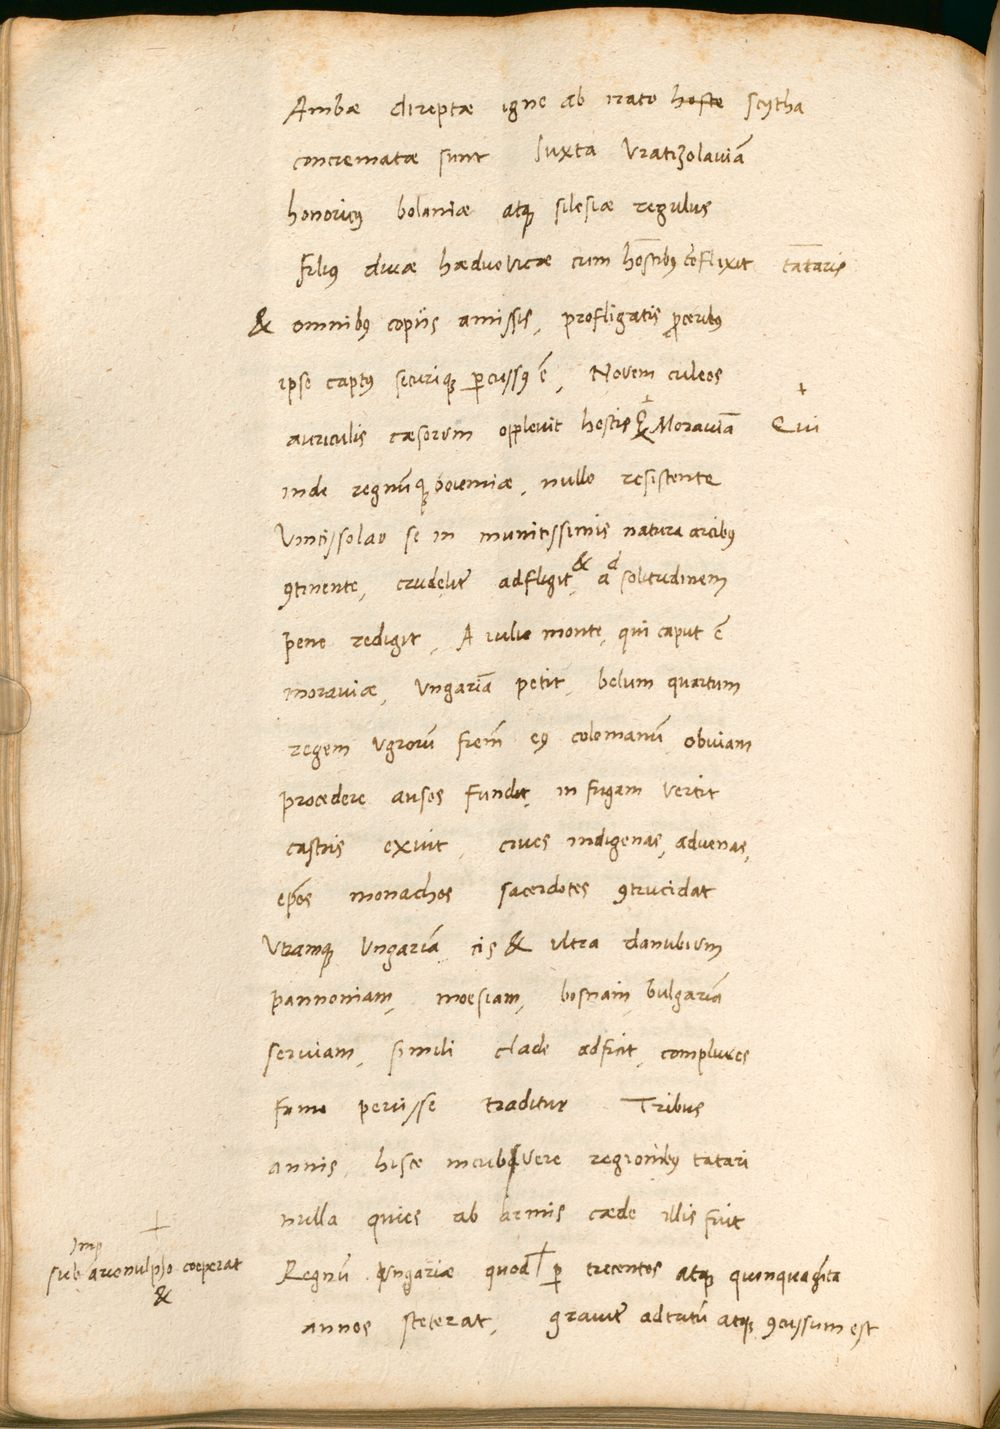 Ambæ direptæ igne ab irato hoste scytha
concrematæ sunt Iuxta Vratizolauiā
honoricꝰ bolaniæ atqꝫ silesiæ regulus
filiꝰ diuæ hæduuicæ cum hostibꝰ cōflixit tataris
& omnibꝰ copiis amissis, profligatis ꝓceribus
ipse captꝰ securiqꝫ ꝑcussꝰ ē, Novem culeos
auriculis cæsorum opplevit hostis & Morauiā Qui
inde regnūqꝫ boiemiæ, nullo resistente
Vincisslao se in munitissimis natura arcibꝰ
ꝯtinente, crudelit̄ adfligit, & ad solitudinem
pene redigit, A iulio monte, qui caput ē
morauiæ, Vngariā petit, belum quartum
regem Vgrorū frem̄ eꝰ colomanū obuiam
procedere ausos fundit, in fugam vertit
castris exuit, ciues indigenas, aduenas,
ep̄os monachos sacerdotes ꝯtrucidat
Vtramqꝫ Vngariā cis & ultra danubium
pannoniam, moesiam, bosnam, bulgariā
seruiam, simili clade adficit, complures
fame periisse traditur Tribus
annis, hisce incubuere regionibꝰ tatari
nulla quies ab armis cæde illis fuit
Imp
sub arionulpho coeperat
&
Regnū Vngariæ quod ꝑ trecentos atqꝫ quinquagīta
annos steterat, grauit̄ adtritū atqꝫ ꝯcussum est